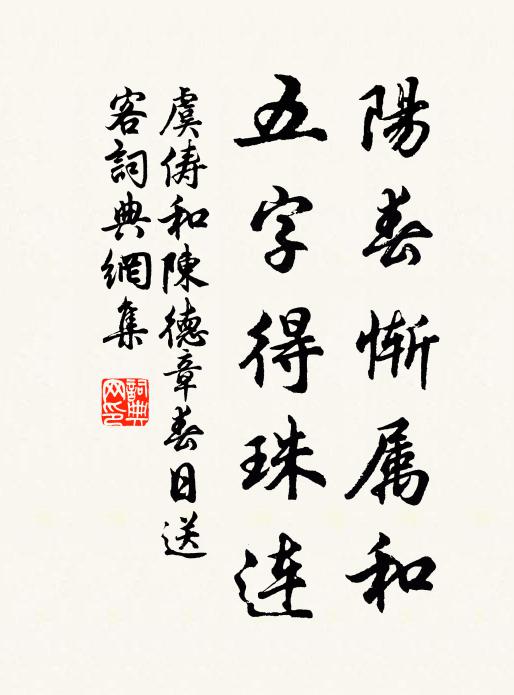 陽春慚属和
五字得珠连
虞儔和陳德章春日送
客詞典網集
詞典网印